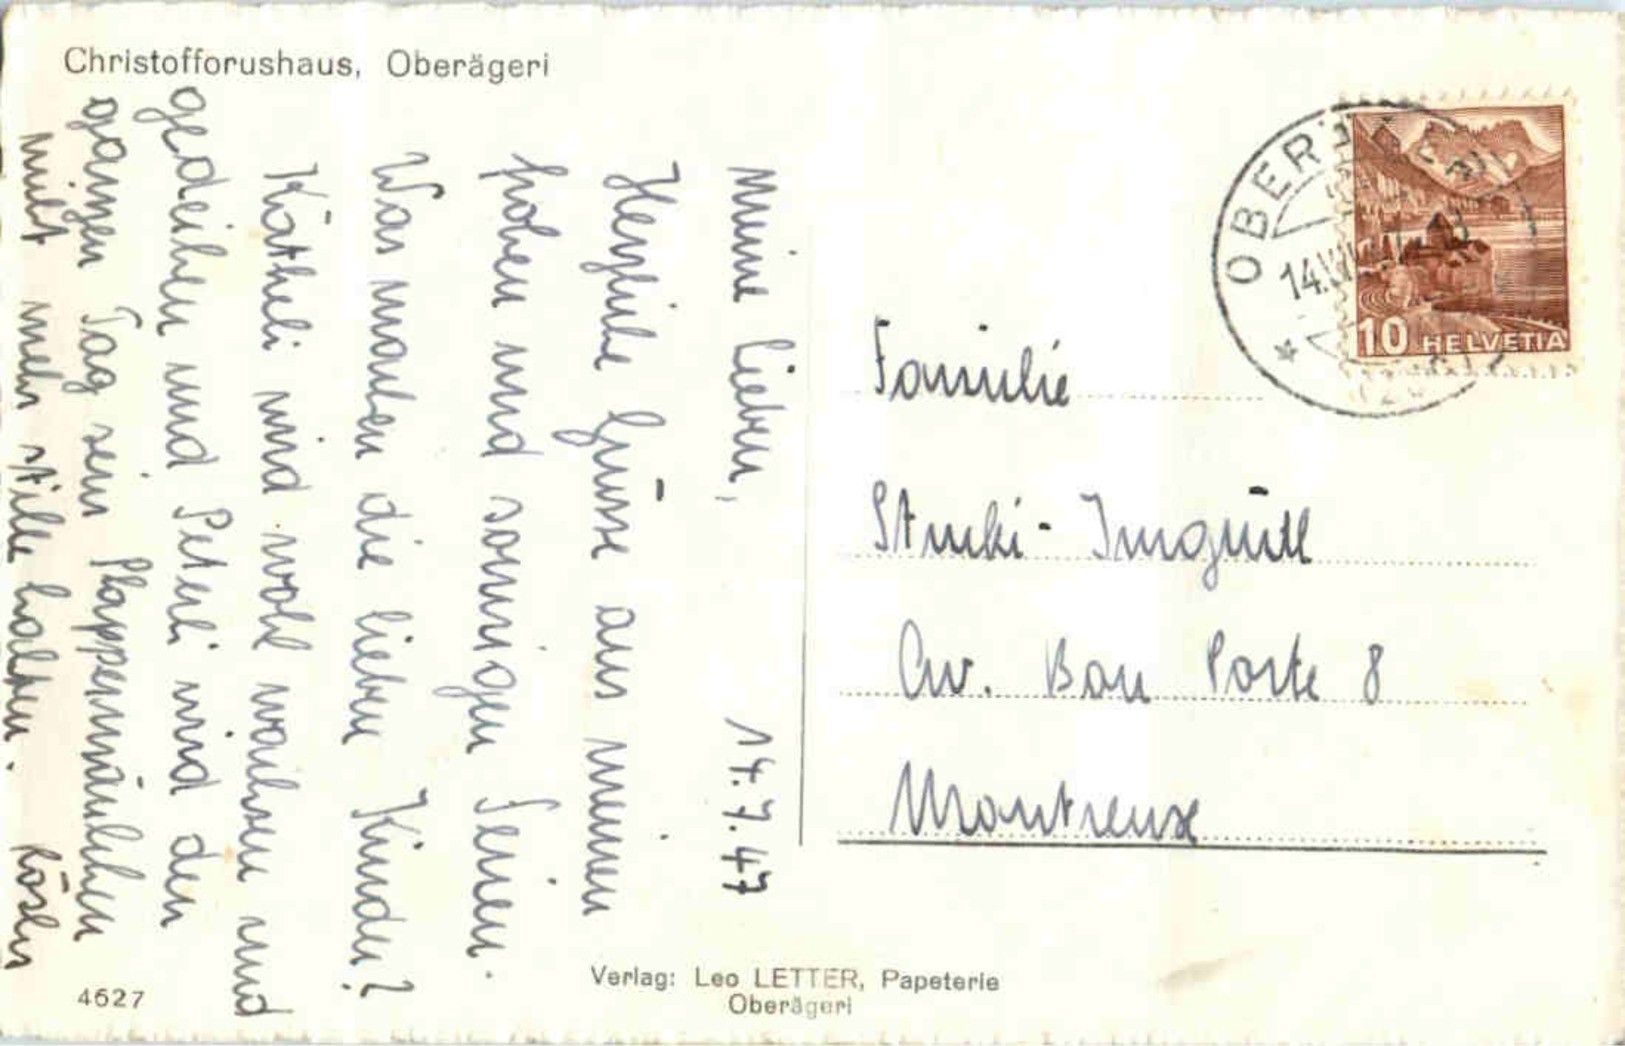 Christofforushaus, Oberägeri
Meine Lieben, 14.7.47
Herzliche Grüsse aus meinen
hohen und sonnigen Ferien.
Was machen die lieben Kinder?
Kätheli wird wohl wachsen und
gedeihen und Peterli wird den
ganzen Tag sein Plappermäulchen
nicht mehr stille halten. Rösly
4627
Verlag: Leo LETTER, Papeterie
Oberägeri
10 HELVETIA
14.VII
Familie
Stucki-Imgrüth
Av. Bon Porte 8
Montreux